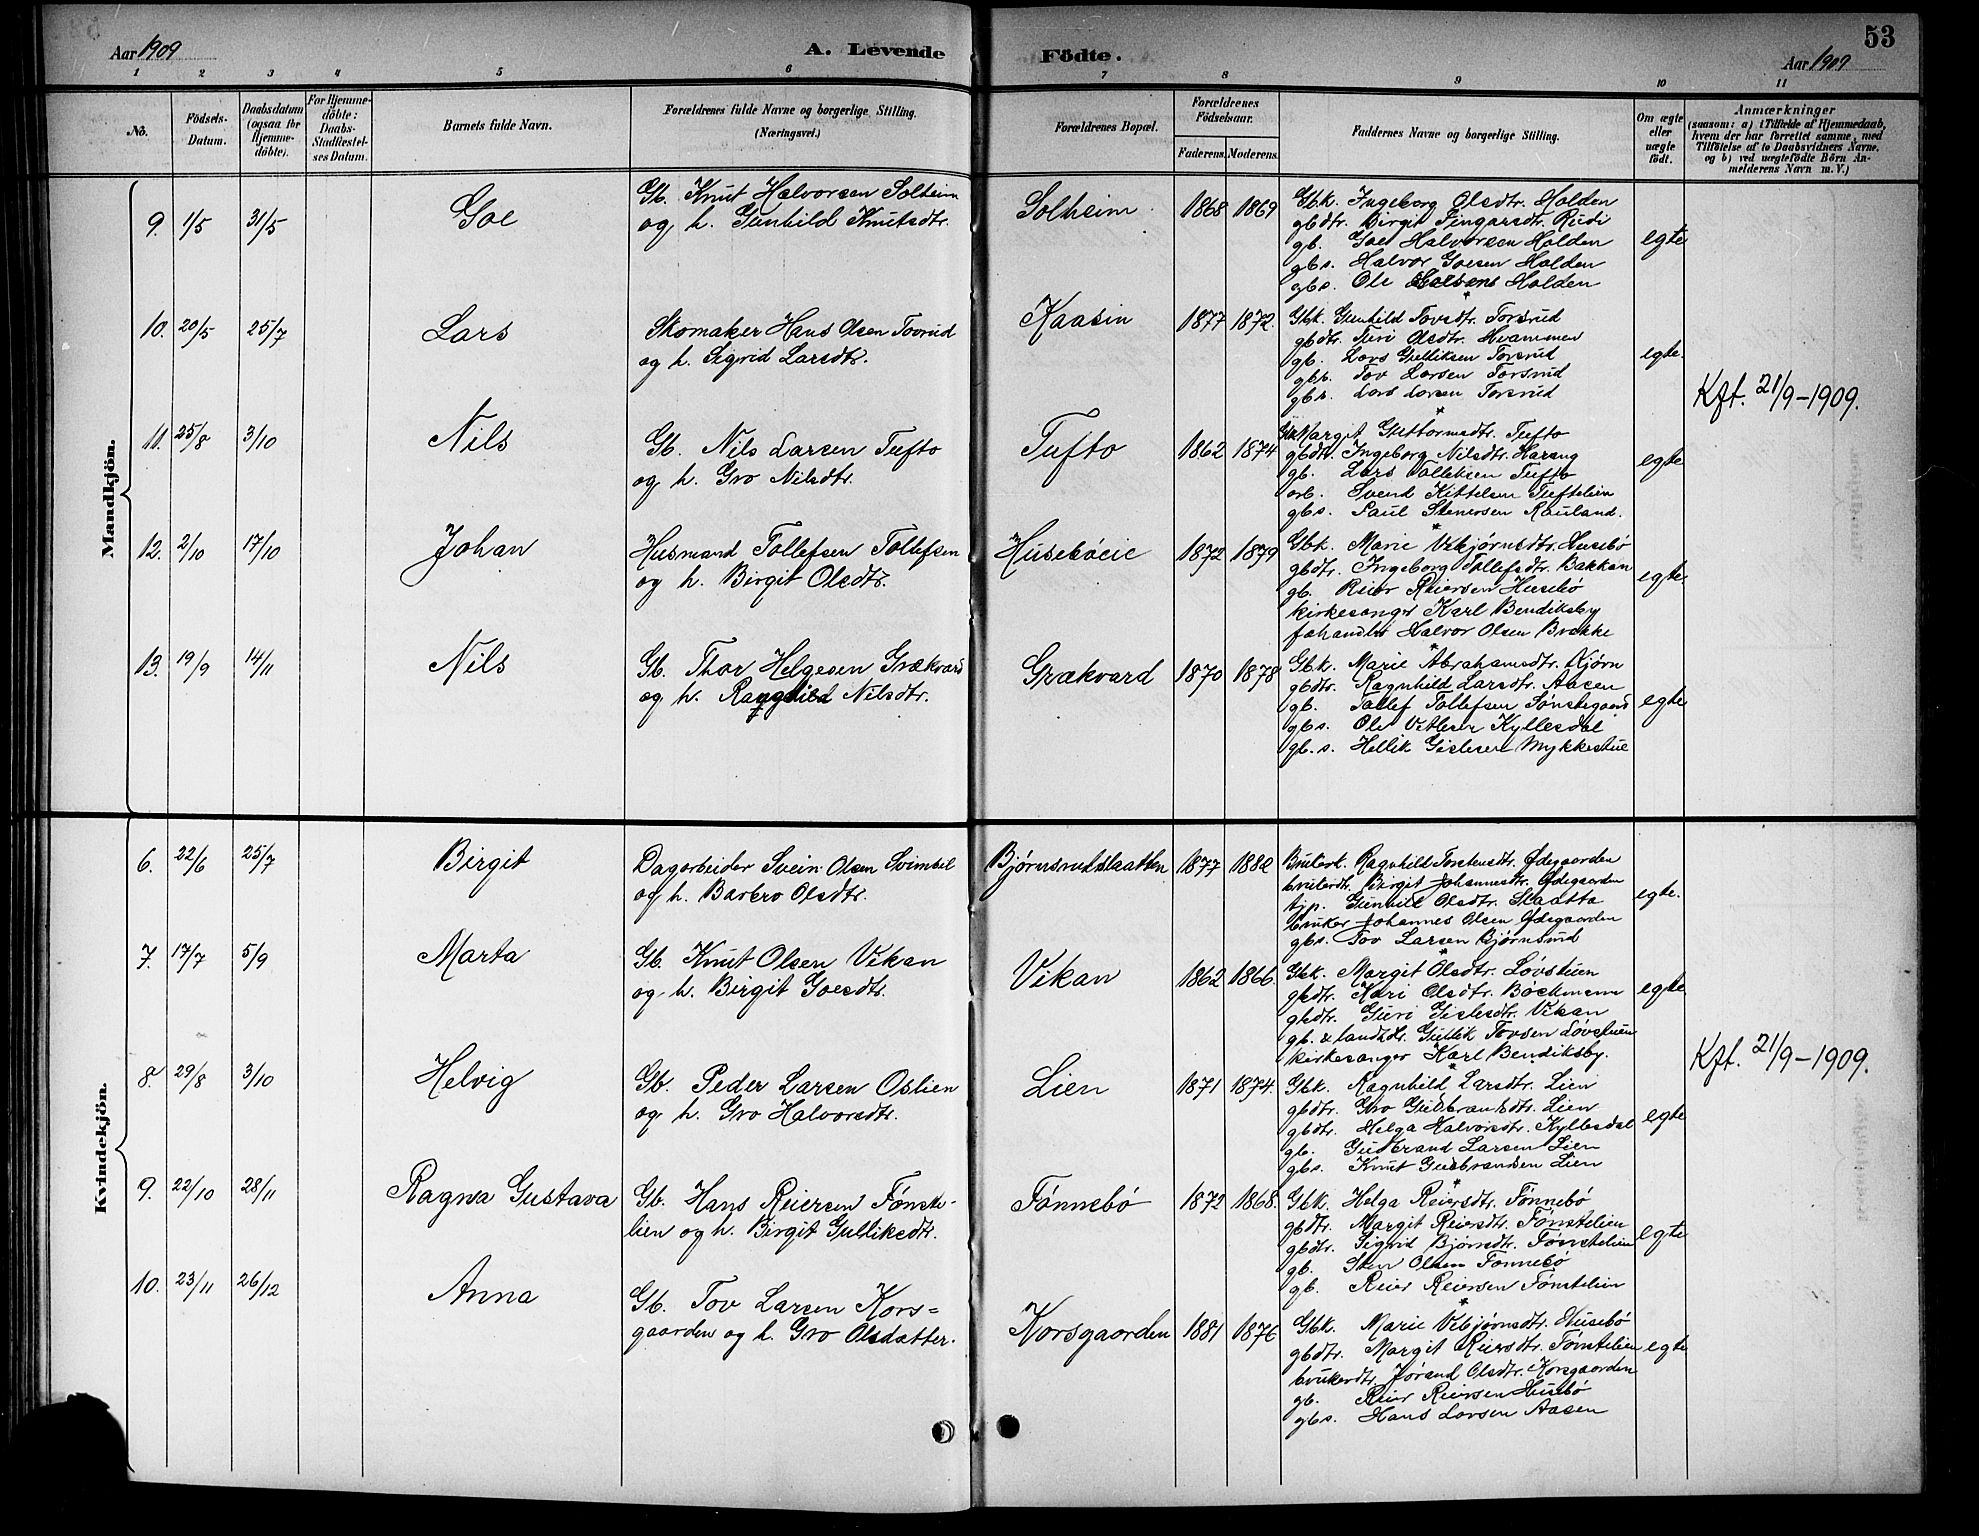 53
Aar 1909
A. Levende
Födte.
Aar 1909
1 2 3 4 5 6 7 8 9 10 11
No.
Födsels-Datum.
Daabsdatum (ogsaa for Hjemme-döbte).
For Hjemme-döbte: Daabs-Stadfæstel-ses Datum.
Barnets fulde Navn.
Forældrenes fulde Navne og borgerlige Stilling. (Næringsvei.)
Forældrenes Bopæl.
Forældrenes Födselsaar.
Faderens. Moderens.
Faddernes Navne og borgerlige Stilling.
Om ægte eller uægte födt.
Anmærkninger
(saasom: a) i Tilfælde af Hjemmedaab, hvem der har forrettet samme, med Tilföielse af to Daabsvidners Navne, og b) ved uægtefödte Börn An-melderens Navn m. V.)
Mandkjön.
9. 1/5 31/5 Goe
Gb. Knut Halvorsen Solheim
og h. Gunhild Knutsdtr.
Solheim 1868 1869
Gbk. Ingeborg Olsdtr. Holden
gbdtr. Birgit Fingarsdtr. Rudi
gb. Goe Halvorsen Holden
gbs. Halvor Goesen Holden
gbs. Ole Holden
egte
10. 20/5 25/7 Lars
Skomaker Hans Olsen Toverud
og h. Sigrid Larsdtr.
Kaasin 1877 1872.
Gbk. Gunhild Tovsdtr. Torsrud
gbdtr. Turi Olsdtr. Hvammen
gb. Lars Gulliksen Torsrud
gbs. Tov Larsen Torsrud
gbs. Lars Larsen Torsrud
egte.
Kft. 21/9-1909.
11. 25/8 3/10 Nils
Gb. Nils Larsen Tufto
og h. Gro Nilsdtr.
Tufto 1862 1874
Gbk. Margit Guttormsdtr. Tufto
gbdtr. Ingeborg Nilsdtr. Haraug
gb. Lars Tolleksen Tufto
arb. Svend Kittelsen Tuftelien
gbs. Paul Stenersen Rauland.
egte
12. 2/10 17/10 Johan
Husmand Tollefsen Tollefsen
og h. Birgit Olsdtr.
Huseböeie 1872 1879
Gbk. Marie Vebjørnsdtr. Husebö
gbdtr. Ingeborg Tollefsdtr. Bakkan
gb. Reier Reiersen Husebö
kirkesanger Karl Bendiksby
fæhandler Halvor Olsen Brekke
egte.
13. 19/9 14/11 Nils
Gb. Thor Helgesen Grækvard
og h. Ranghild Nilsdtr.
Grækvard 1870 1878
Gbk. Marie Abrahamsdtr. Njørn
gbdtr. Ragnhild Larsdtr. Aasen
gb. Tollef Tollefsen Sønstegaard
gbs. Ole Vetlesen Kyllesdal
gb. s. Hellik Gislesen Mykkestue
egte
Kvindekjön.
6. 22/6 25/7 Birgit
Dagarbeider Svein Olsen Svimbil
og h. Barbro Olsdtr.
Bjørnsrudslaatten 1877 1882
Brukerk. Ragnhild Torstensdtr. Ødegaarden
brukerdtr. Birgit Johannesdtr. Ødegaarden
tjp. Gunhild Olsdtr. Slaatta
bruker Johannes Olsen Ødegaarden
gbs. Tov Larsen Bjørnsrud
egte.
7. 17/7 5/9 Marta
Gb. Knut Olsen Vikan
og h. Birgit Goesdtr.
Vikan 1862 1866.
Gbk. Margit Olsdtr. Løvstuen
gbdtr. Kari Olsdtr. Böckmann
gbdtr. Guri Gislesdtr. Vikan
gb. & landh. Gullik Tovsen Løvstuen
kirkesanger Karl Bendiksby.
egte.
Kft. 21/9-1909.
8. 29/8 3/10 Helvig
Gb. Peder Larsen Oslien
og h. Gro Halvorsdtr.
Lien 1871 1874.
Gbk. Ragnhild Larsdtr. Lien
gbdtr. Gro Gudbrandsdtr. Lien
gbdtr. Helga Halvorsdtr. Kyllesdal
gb. Gudbrand Larsen Lien
gbs. Knut Gudbrandsen Lien
egte
9. 22/10 28/11 Ragna Gustava
Gb. Hans Reiersen Fønste-
lien og h. Birgit Gulliksdtr.
Fønnebö 1872 1868.
Gbk. Helga Reiersdtr. Fønnebö
gbdtr. Margit Reiersdtr. Fønstelien
gbdtr. Sigrid Bjørnsdtr. Fønstelien
gb. Sten Olsen Fønnebö
gb. Reier Reiersen Fønstelien
egte
10. 23/11 26/12 Anna
Gb. Tov Larsen Kors=
gaarden og h. Gro Olsdatter.
Korsgaarden 1881 1876
Gbk. Marie Vebjørnsdtr. Husebö
gbdtr. Margit Reiersdtr. Fønstelien
brukerdtr. Jørand Olsdtr. Korsgaarden
gb. Reier Reiersen Husebö
gbs. Hans Larsen Aasen
egte